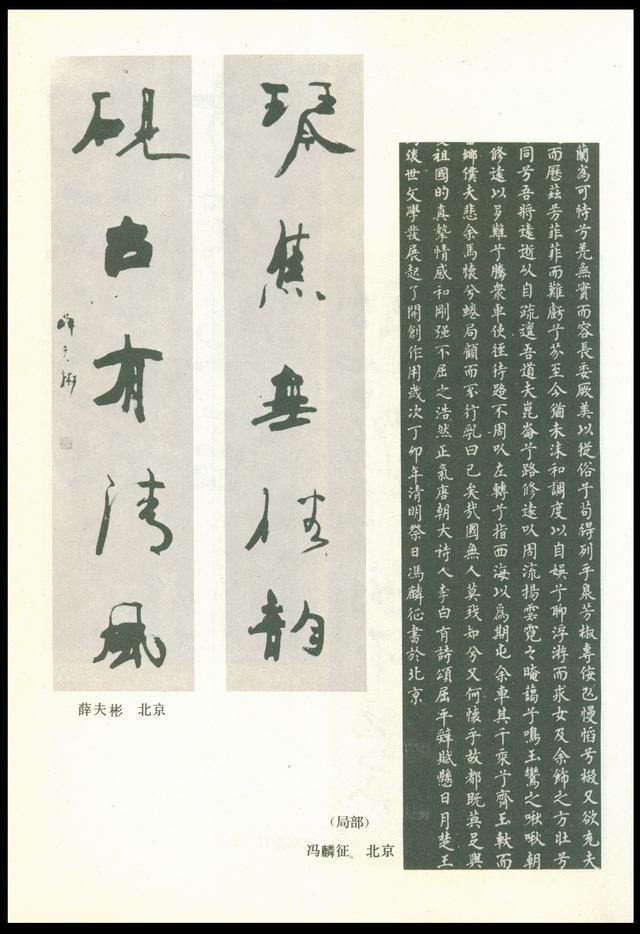 蘭為可恃兮羌無實而容長委厥美以從俗兮苟得列乎衆芳椒專佞以慢慆兮樧又欲充夫
而歷茲芳菲菲而難虧兮芬至今猶未沬和調度以自娛兮聊浮游而求女及余飾之方壯兮
同兮吾將遠逝以自疏邅吾道夫崑崙兮路修遠以周流揚雲霓之晻藹兮鳴玉鸞之啾啾朝
修遠以多難兮騰衆車使徑待路不周以左轉兮指西海以為期屯余車其千乘兮齊玉軑而
鄉僕夫悲余馬懷兮蜷局顧而不行亂曰已矣哉國無人莫我知兮又何懷乎故都既莫足與
祖國的真摯情感和剛强不屈之浩然正氣唐朝大诗人李白有詩頌屈平辭賦懸日月楚王
後世文學發展起了開創作用歲次丁卯年清明祭日馮麟征書於北京
（局部）
冯麟征 北京
琴焦無俗韵
硯古有清風
薛夫彬
薛夫彬 北京